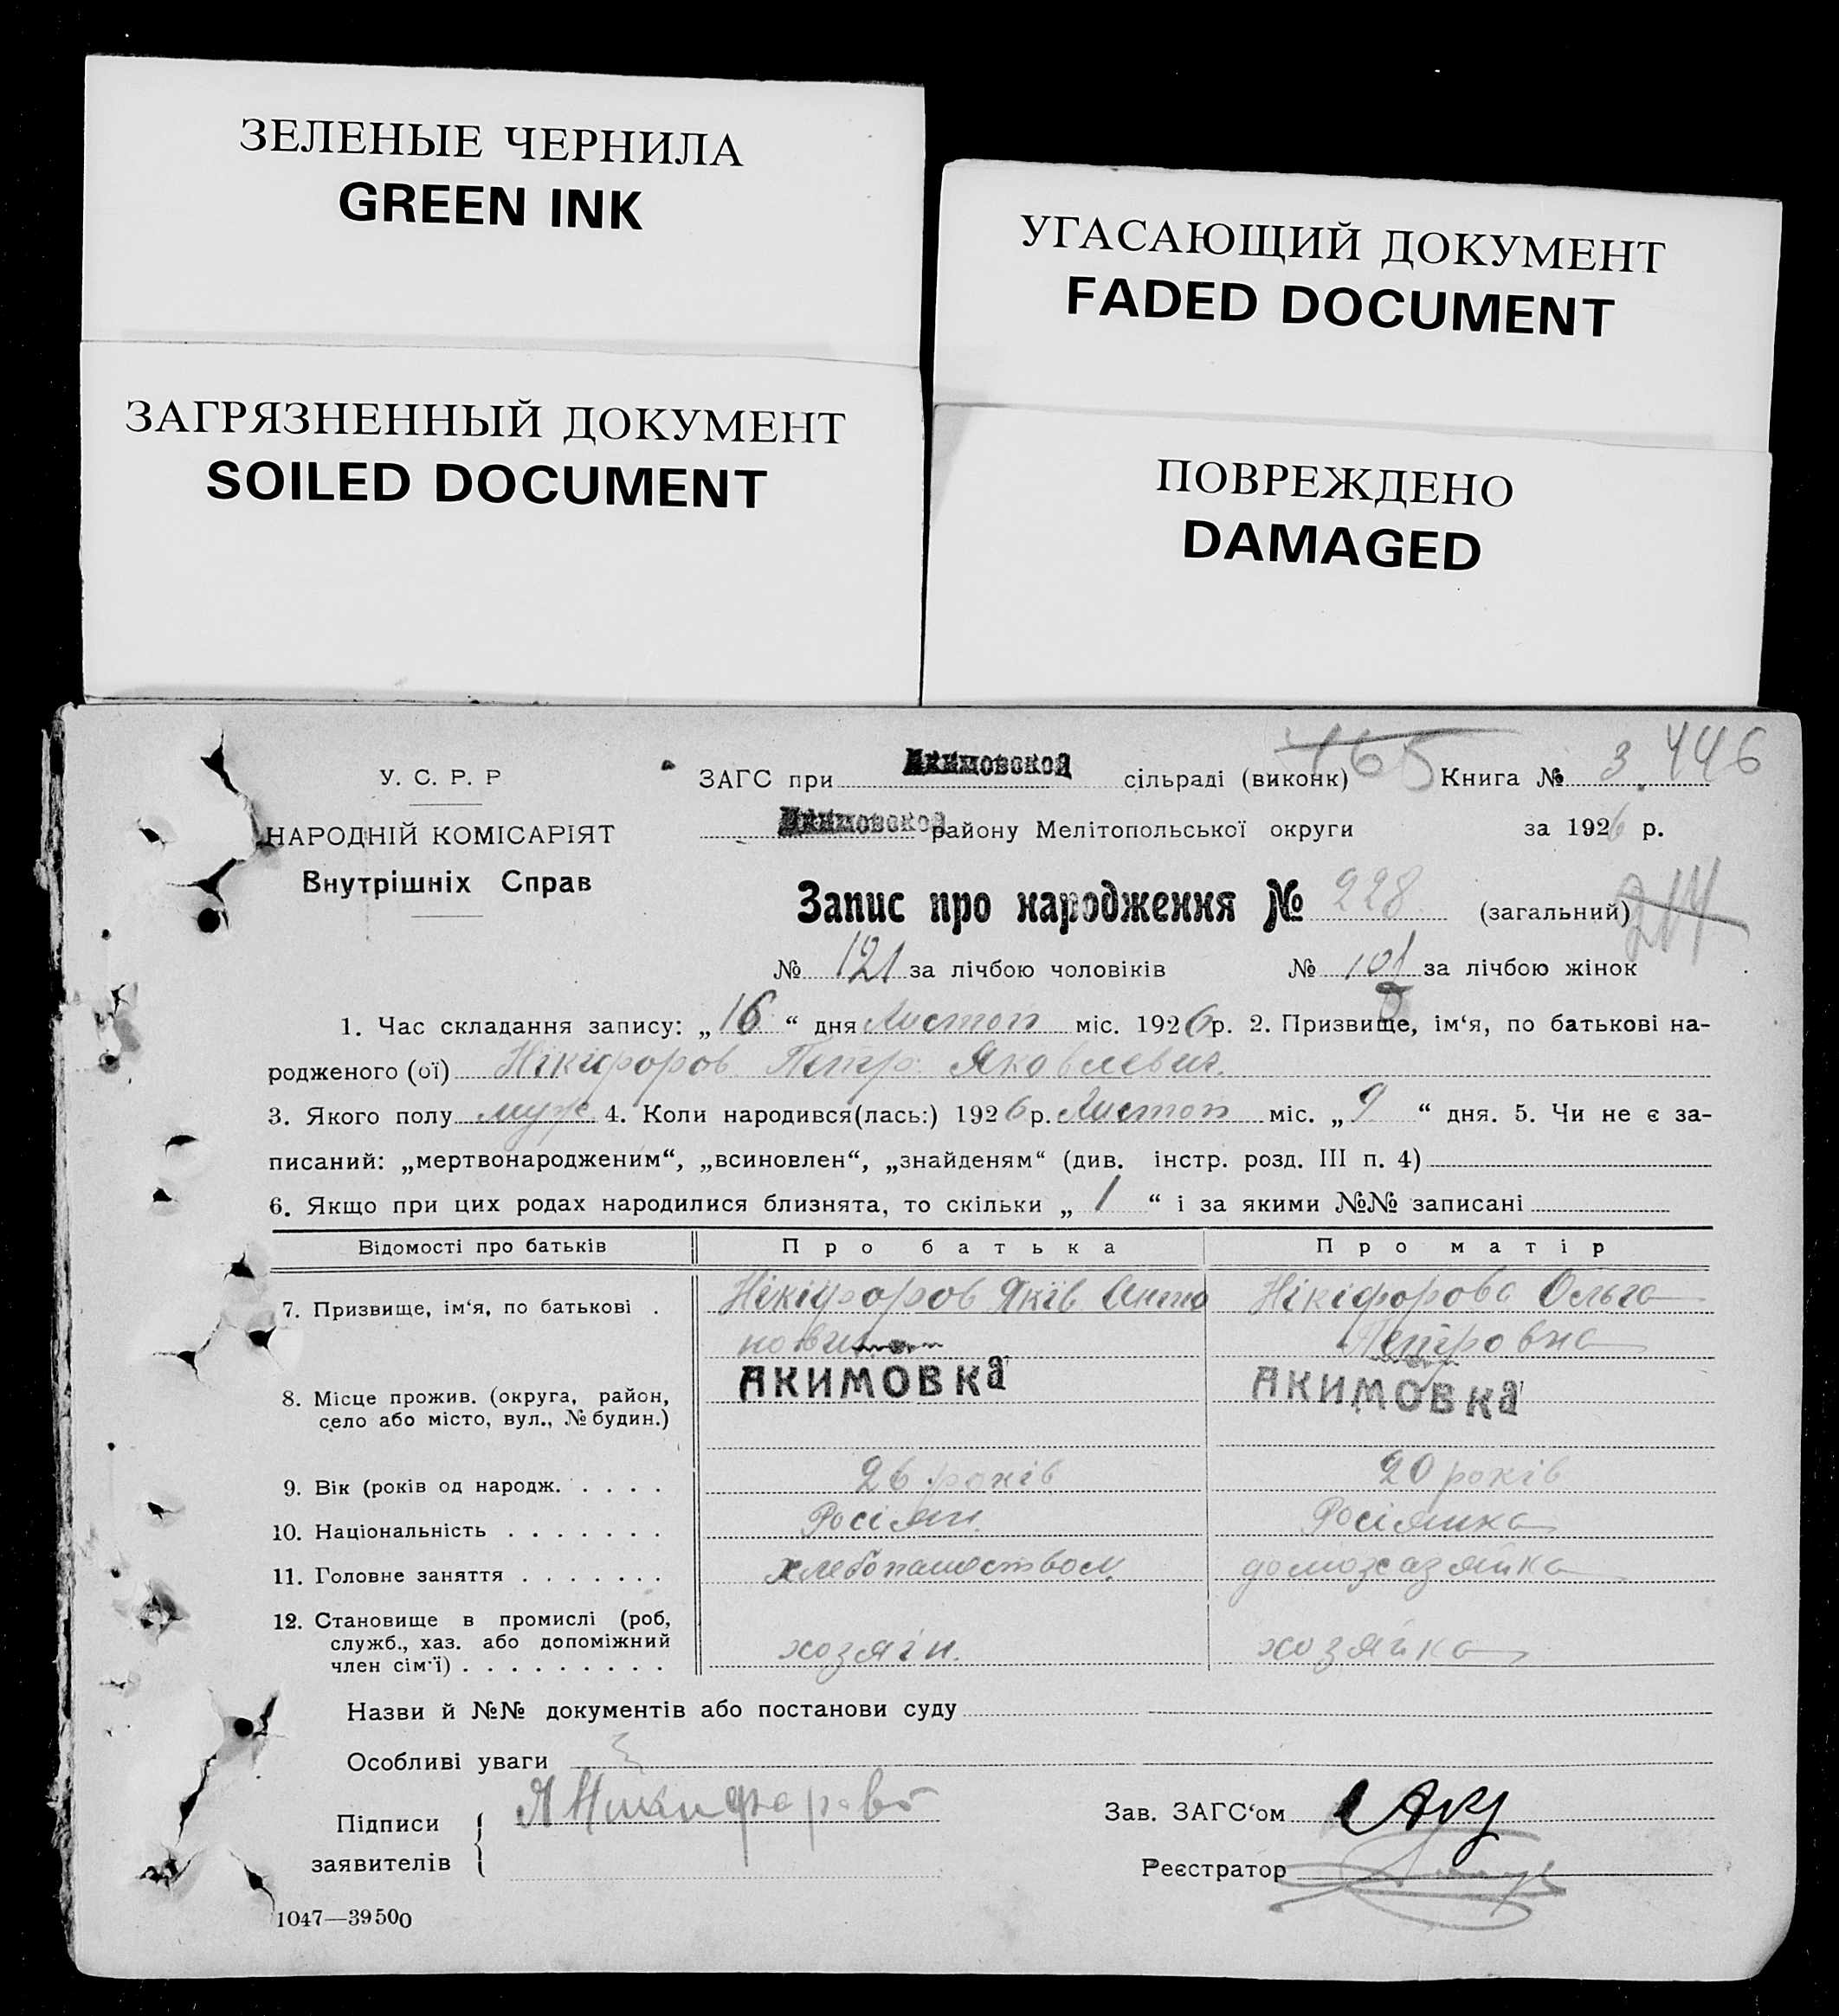 ЗЕЛЕНЫЕ ЧЕРНИЛА
GREEN INK
УГАСАЮЩИЙ ДОКУМЕНТ
FADED DOCUMENT
ЗАГРЯЗНЕННЫЙ ДОКУМЕНТ
SOILED DOCUMENT
ПОВРЕЖДЕНО
DAMAGED
465 446
У. С. Р. Р
ЗАГС при Акимовской сільраді (виконк) Книга № 3
НАРОДНІЙ КОМІСАРІЯТ
Акимовской району Мелітопольської округи за 1926 р.
Внутрішніх Справ
Запис про народження № 228 (загальний) 214
№ 121 за лічбою чоловіків № 101 за лічбою жінок
1. Час складання запису: „16“ дня Листоп міс. 1926 р. 2. Призвище, ім‘я, по батькові на-
родженого (ої) Нікіфоров Петр Яковлевич.
3. Якого полу муж 4. Коли народився(лась:) 1926 р. Листоп міс. „9“ дня. 5. Чи не є за-
писаний: „мертвонародженим“, „всиновлен“, „знайденям“ (див. інстр. розд. III п. 4)
6. Якщо при цих родах народилися близнята, то скільки „1“ і за якими №№ записані
Відомості про батьків Про батька Про матір
7. Призвище, ім‘я, по батькові . Нікіфоров Яків Анто Нікіфорова Ольга
нович Петровна
8. Місце прожив. (округа, район, АКИМОВКа АКИМОВКа
село або місто, вул., № будин.)
9. Вік (років од народж. . . . . 26 років 20 років
10. Національність . . . . . . . Росіян. Росіянка
11. Головне заняття . . . . . . . хлебопашеством. домохазяйка
12. Становище в промислі (роб,
служб., хаз. або допоміжний
член сім‘ї) . . . . . . . . . хозяін. хозяйка
Назви й №№ документів або постанови суду
Особливі уваги
Підписи Я Никифоров Зав. ЗАГС‘ом
заявителів Реєстратор
1047—39500